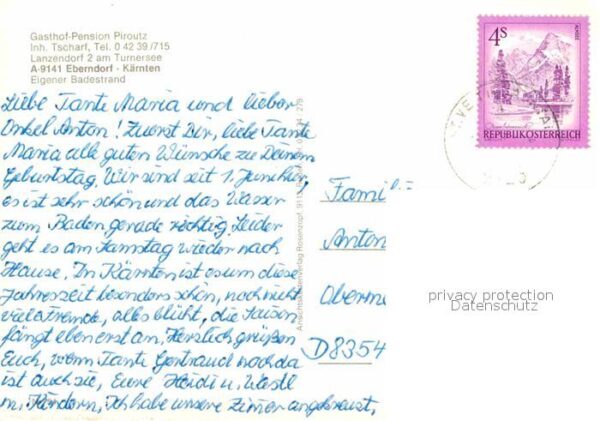 Gasthof-Pension Piroutz
Inh. Tscharf, Tel. 0 42 39 /715
Lanzendorf 2 am Turnersee
A-9141 Eberndorf - Kärnten
Eigener Badestrand
4s
ALMSEE
REPUBLIK ÖSTERREICH
Liebe Tante Maria und lieber
Onkel Anton! Zuerst Dir, liebe Tante
Maria alle guten Wünsche zu Deinem
Geburtstag. Wir sind seit 1. Juni hier,
es ist sehr schön und das Wasser
zum Baden gerade richtig. Leider
geht es am Samstag wieder nach
Hause. In Kärnten ist es um diese
Jahreszeit besonders schön, noch nicht
viele Fremde, alles blüht, die Saison
fängt eben erst an. Herzlich grüßen
Euch, wenn Tante Gertraud noch da
ist auch sie, Eure Heidi u. Wastl
m. Kindern, Ich habe unsere Zimer angekreuzt.
Ansichtskartenverlag Rosenzopf, 91
Famil
Anton
Oberme
D8354
privacy protection
Datenschutz